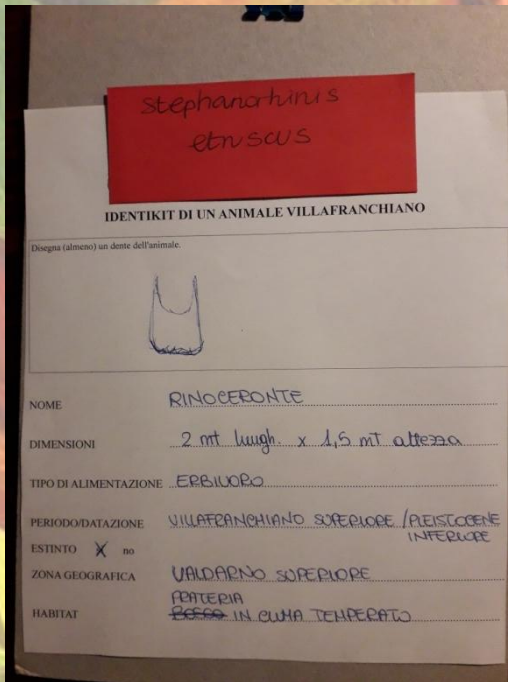 stephanorhinis
etruscus
IDENTIKIT DI UN ANIMALE VILLAFRANCHIANO
Disegna (almeno) un dente dell'animale.
NOME RINOCERONTE
DIMENSIONI 2 mt lungh. x 1,5 mT altezza
TIPO DI ALIMENTAZIONE ERBIVORO
PERIODO/DATAZIONE VILLAFRANCHIANO SUPERIORE / PLEISTOCENE
INFERIORE
ESTINTO X no
ZONA GEOGRAFICA VALDARNO SUPERIORE
PRATERIA
HABITAT BOSCO IN CLIMA TEMPERATO